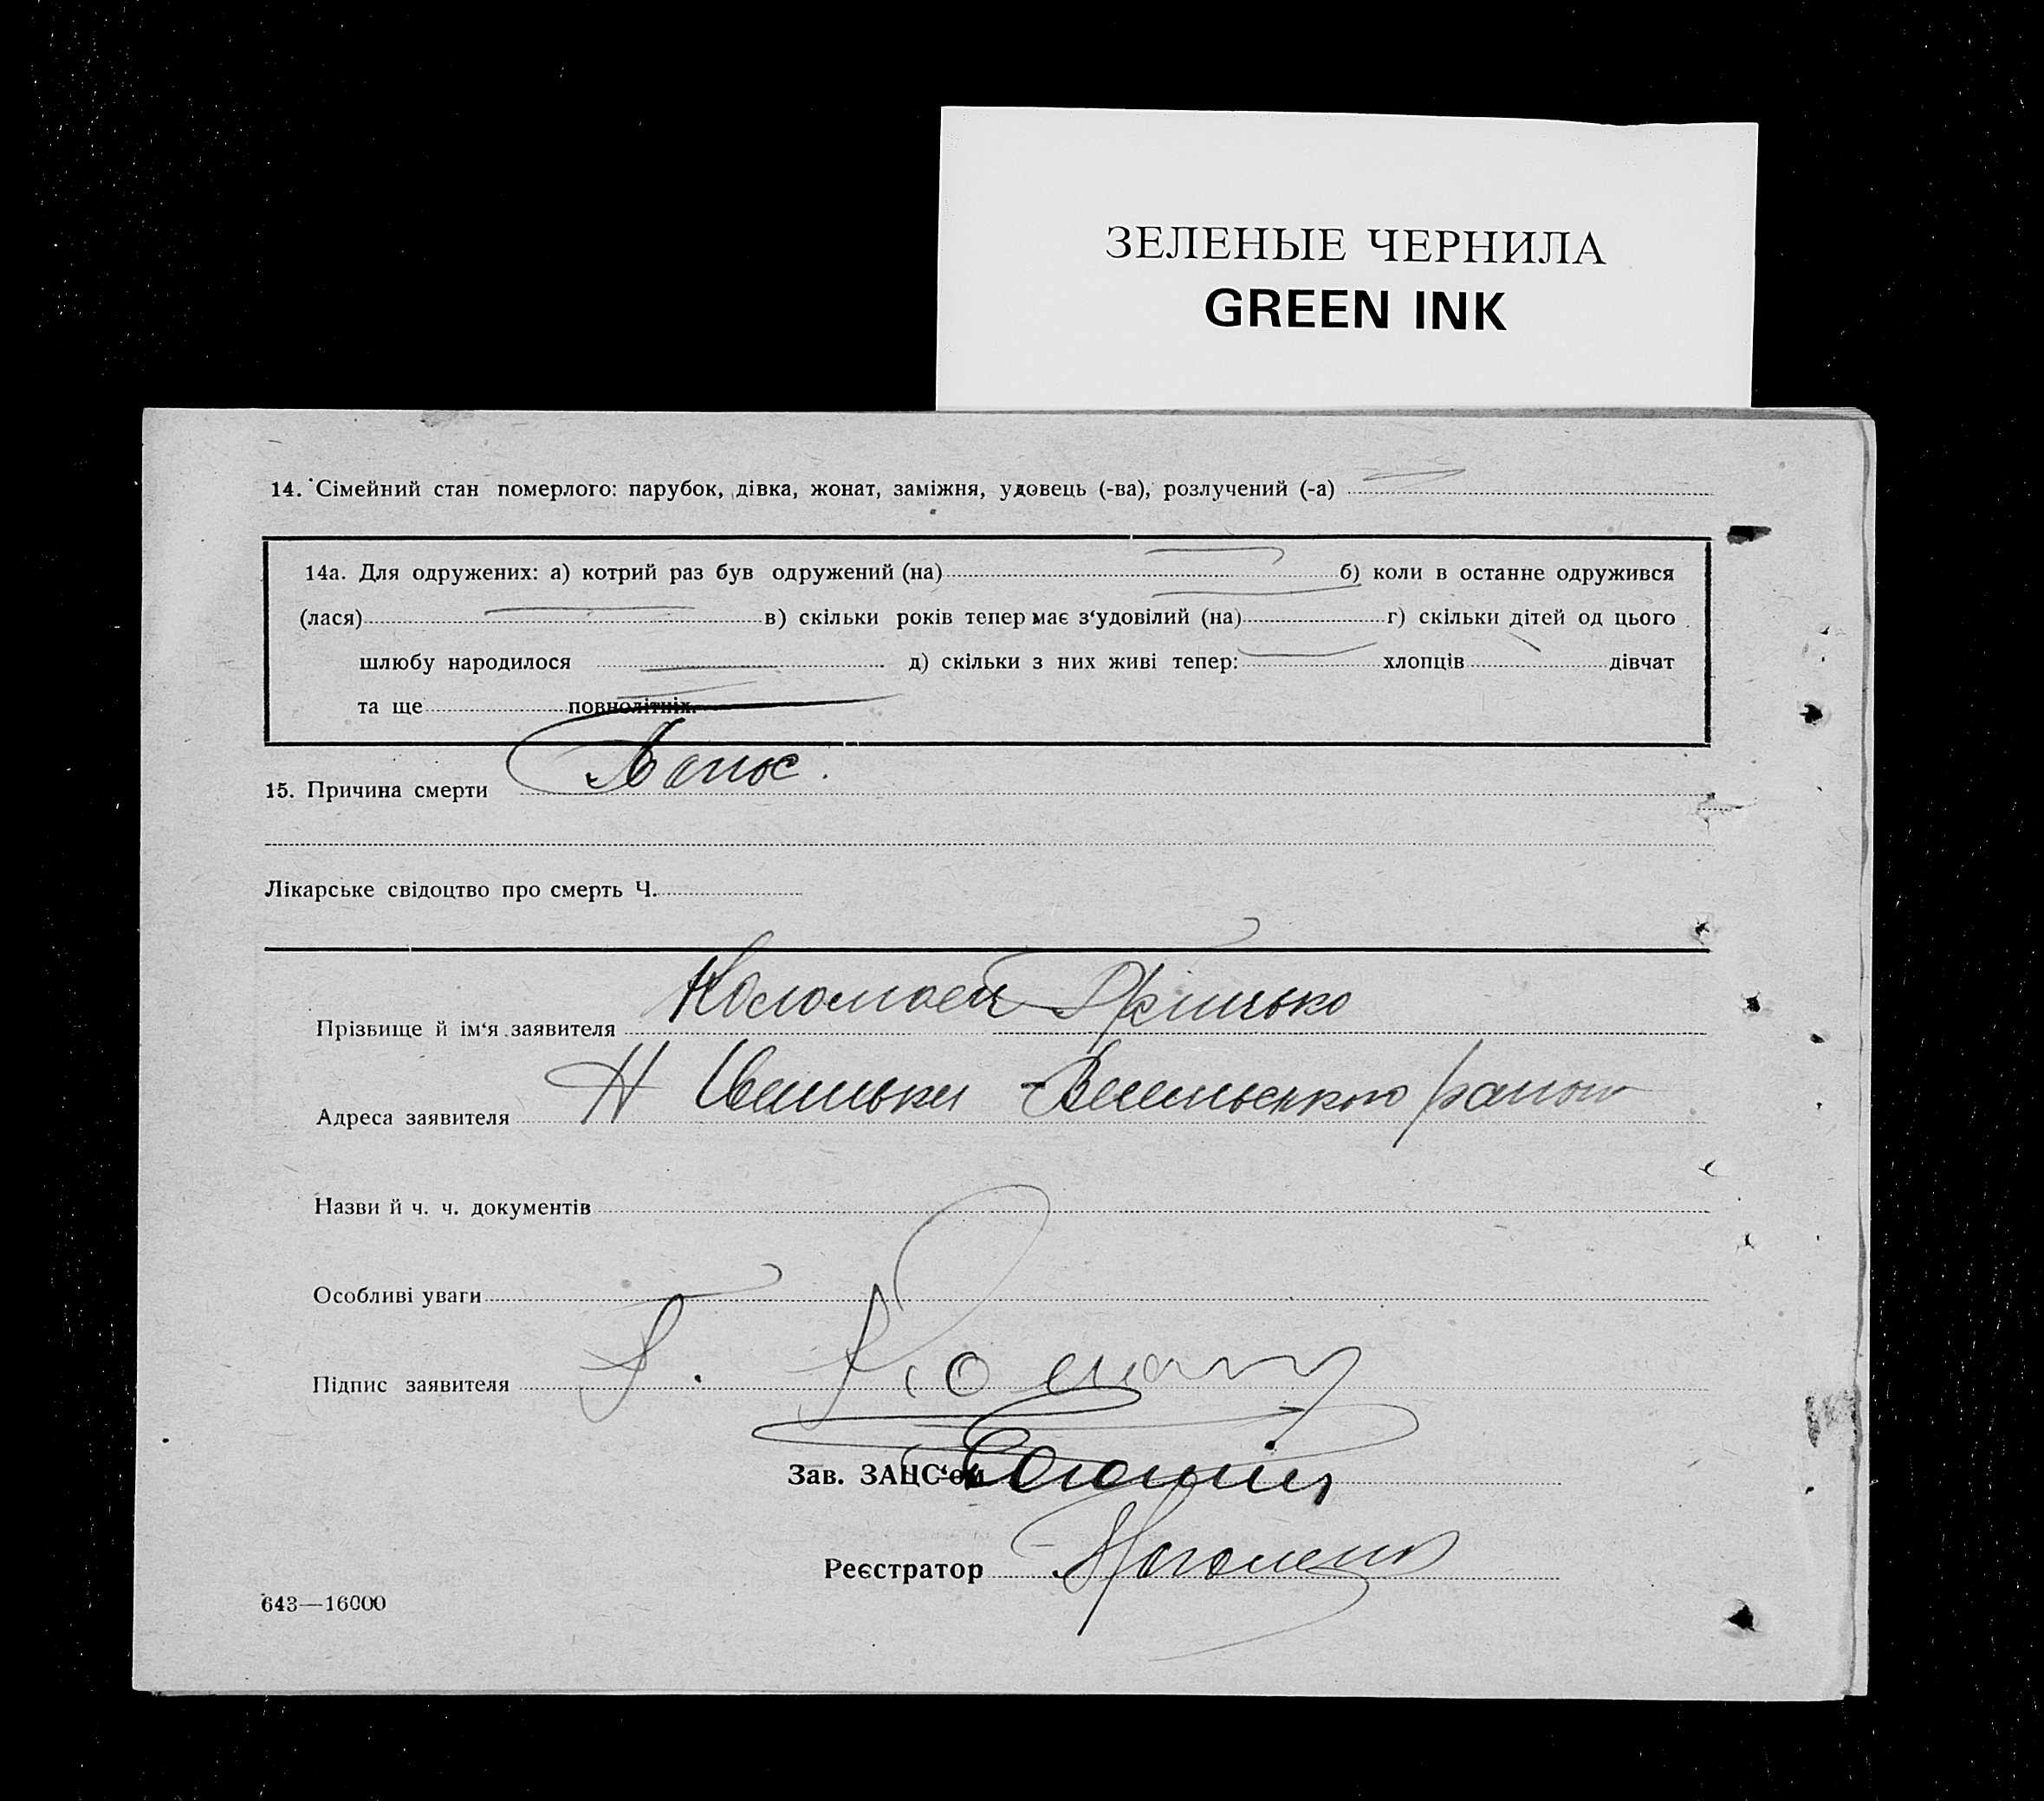 ЗЕЛЕНЫЕ ЧЕРНИЛА
GREEN INK
14. Сімейний стан померлого: парубок, дівка, жонат, заміжня, удовець (-ва), розлучений (-а)
14а. Для одружених: а) котрий раз був одружений (на) б) коли в останнє одружився
(лася) в) скільки років тепер має з‘удовілий (на) г) скільки дітей од цього
шлюбу народилося д) скільки з них живі тепер: хлопців дівчат
та ще повнолітніх.
15. Причина смерти
Лікарське свідоцтво про смерть Ч.
Прізвище й ім‘я заявителя Коломоец Грицько
Адреса заявителя Н району
Назви й ч. ч. документів
Особливі уваги
Підпис заявителя
Зав. ЗАНС‘ом
Реєстратор
643—16000